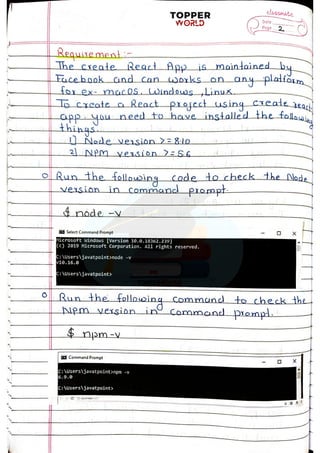 TOPPER
WORLD
classmate
Date
Page 2
Requirement :-
The create React App is maintained by
Facebook and can works on any platform
for ex- macOS, Windows, Linux.
To create a React project using create react
app, you need to have installed the following
things.
1) Node version >= 8.10
2) NPM version >= 5.6
o Run the following code to check the Node
version in command prompt.
$ node -v
Select Command Prompt
Microsoft Windows [Version 10.0.18362.239]
(c) 2019 Microsoft Corporation. All rights reserved.
C:\Users\javatpoint>node -v
v10.16.0
C:\Users\javatpoint>
o Run the following command to check the
Npm version in command prompt.
$ npm -v
Command Prompt
C:\Users\javatpoint>npm -v
6.9.0
C:\Users\javatpoint>